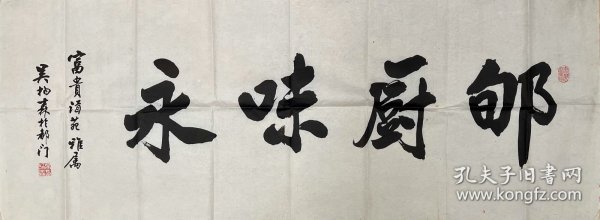 郇厨味永
富貴苑 雅属
吴森於都门
孔夫子旧书网
www.kongfz.com